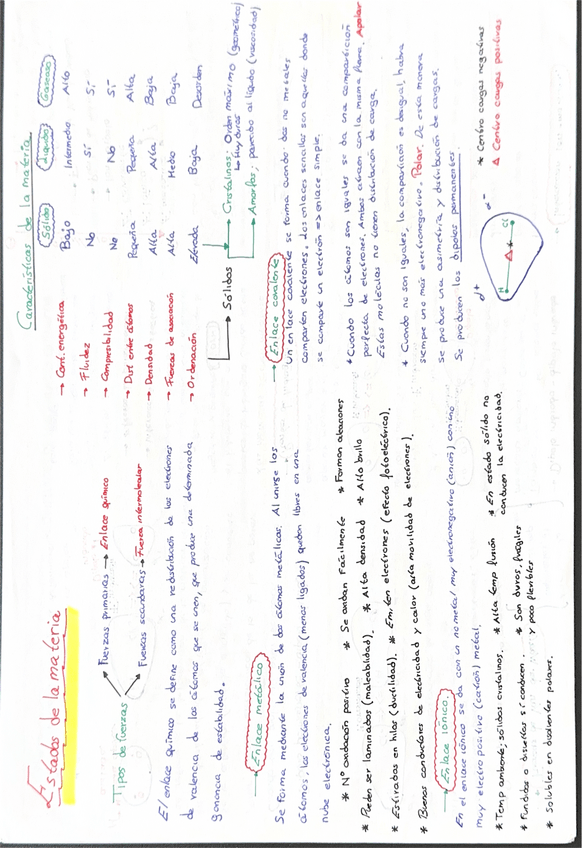 Estados de la materia
Tipos de fuerzas
Fuerzas primarias → Enlace químico
Fuerzas secundarias → Fuerza intermolecular
El enlace químico se define como una redistribución de los electrones
de valencia de los átomos que se unen, que produce una determinada
ganancia de estabilidad.
→ Enlace metálico
Se forma mediante la unión de dos átomos metálicos. Al unirse los
átomos, los electrones de valencia (menos ligados) quedan libres en una
nube electrónica.
* Nº oxidación positivo * Se oxidan Fácilmente * Forman aleaciones
* Pueden ser laminados (maleabilidad). * Alta densidad * Alto brillo
* Estirados en hilos (ductilidad). * Emiten electrones (efecto fotoeléctrico).
* Buenos conductores de electricidad y calor (alta movilidad de electrones).
→ Enlace iónico
En el enlace iónico se da con un no metal muy electronegativo (anión) con uno
muy electro positivo (catión) metal.
* Temp ambiente, sólidos cristalinos. * Alta temp fusión * En estado sólido no
conducen la electricidad.
* Fundidos o disueltos sí conducen. * Son duros, frágiles
y poco flexibles
* Solubles en disolventes polares.
Características de la materia
Sólido Líquido Gaseoso
→ Cont. energética Bajo Intermedio Alto
→ Fluidez No Sí Sí
→ Compresibilidad No No Sí
→ Dist entre átomos Pequeña Pequeña Alta
→ Densidad Alta Alta Baja
→ Fuerzas de asociación Alta Medio Baja
→ Ordenación Elevada Baja Desorden
→ Sólidos
→ Cristalinos: Orden máximo (geométrico)
→ Amorfos, parecido al líquido (viscosidad)
→ Enlace covalente
Un enlace covalente se forma cuando dos no metales
comparten electrones. Los enlaces sencillos son aquellos donde
se comparte un electrón => enlace simple.
* Cuando los átomos son iguales se da una compartición
perfecta de electrones. Ambos atraen con la misma fuerza. Apolar
Estas moléculas no tienen distribución de carga.
* Cuando no son iguales, la compartición es desigual, habrá
siempre uno más electronegativo. Polar. De esta manera
se produce una asimetría y distribución de cargas.
Se producen los dipolos permanentes
* Centro cargas negativas
Δ Centro cargas positivas
H
Cl